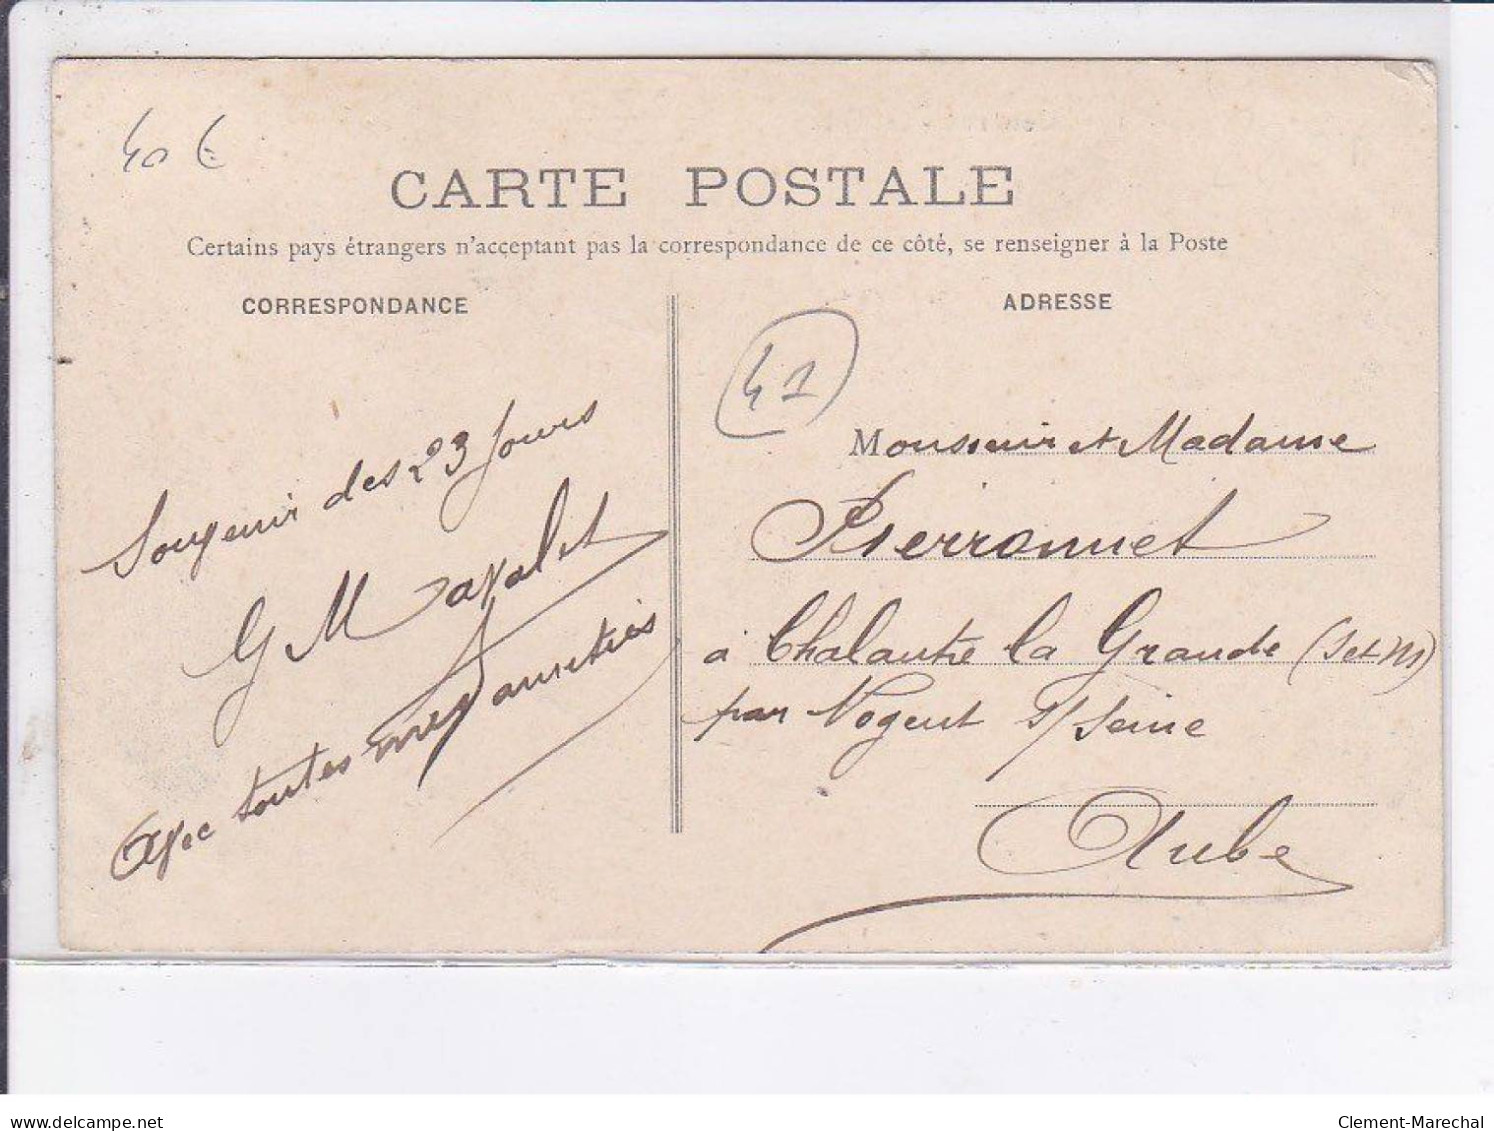 40 €
CARTE POSTALE
Certains pays étrangers n'acceptant pas la correspondance de ce côté, se renseigner à la Poste
CORRESPONDANCE
Souvenir des 23 jours
G Mavalet
Avec toutes mes amitiés
ADRESSE
41
Monsieur et Madame
Pierronnet
à Chalautre la Grande (S et M)
par Nogent s/ Seine
Aube
delcampe.net
Clement-Marechal